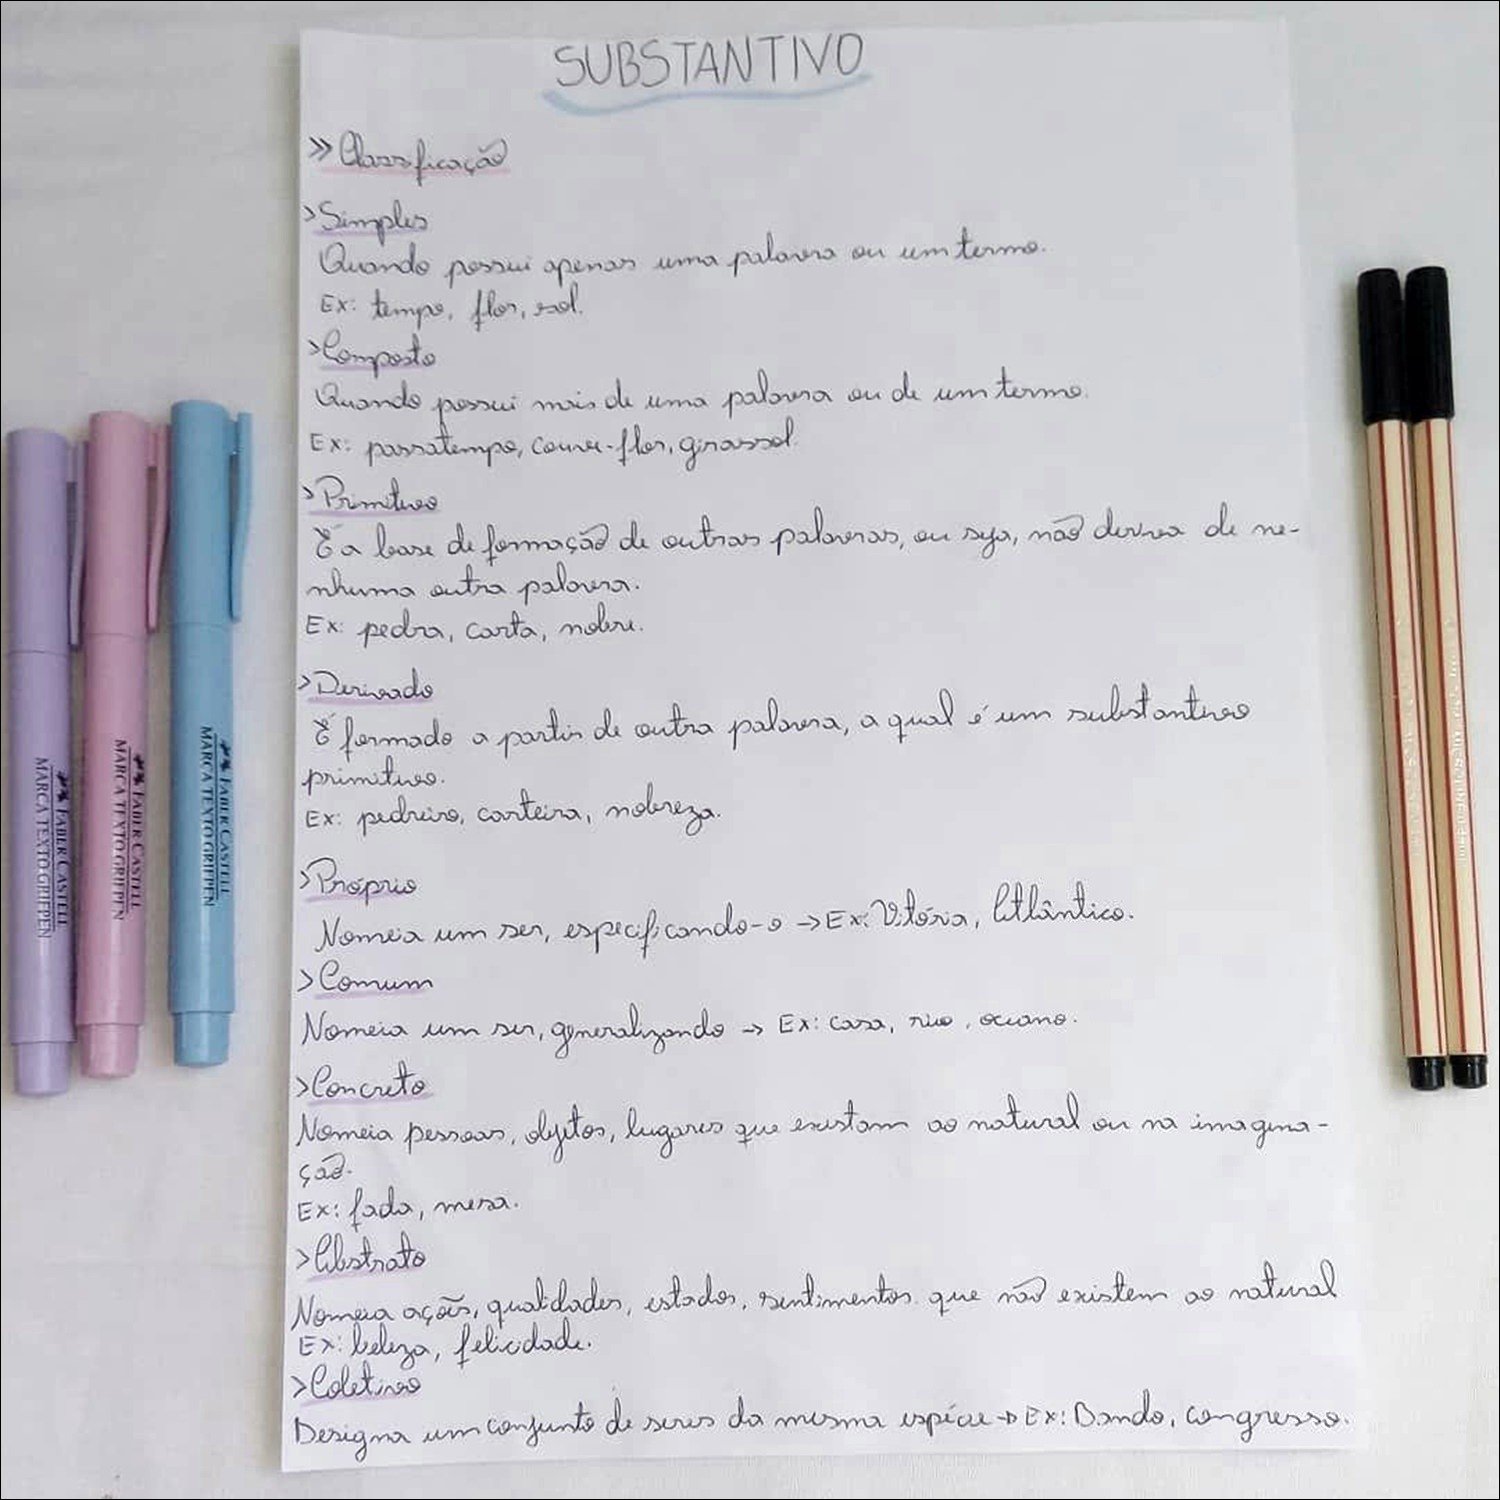 SUBSTANTIVO
>> Classificação
> Simples
Quando possui apenas uma palavra ou um termo.
Ex: tempo, flor, sol.
> Composto
Quando possui mais de uma palavra ou de um termo.
Ex: passatempo, couve-flor, girassol.
> Primitivo
É a base de formação de outras palavras, ou seja, não deriva de ne-
nhuma outra palavra.
Ex: pedra, carta, nobre.
> Derivado
É formado a partir de outra palavra, a qual é um substantivo
primitivo.
Ex: pedreiro, carteira, nobreza.
> Próprio
Nomeia um ser, especificando-o → Ex: Vitória, Atlântico.
> Comum
Nomeia um ser, generalizando → Ex: casa, rio, oceano.
> Concreto
Nomeia pessoas, objetos, lugares que existam ao natural ou na imagina-
ção.
Ex: fada, mesa.
> Abstrato
Nomeia ações, qualidades, estados, sentimentos que não existem ao natural
Ex: beleza, felicidade.
> Coletivo
Designa um conjunto de seres da mesma espécie → Ex: Bando, congresso.
FABER CASTELL
MARCA TEXTO GRIFPEN
FABER CASTELL
MARCA TEXTO GRIFPEN
FABER CASTELL
MARCA TEXTO GRIFPEN